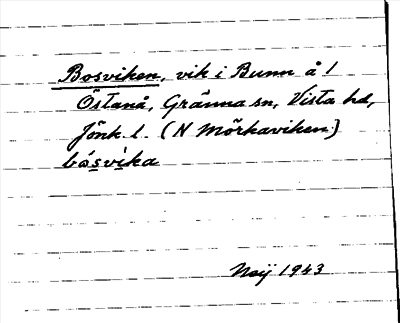 Bosviken, vik i Bunn å /
Östanå, Gränna sn, Vista hd,
Jönk. l. (N Mörkaviken)
bósvìka
Neij 1943